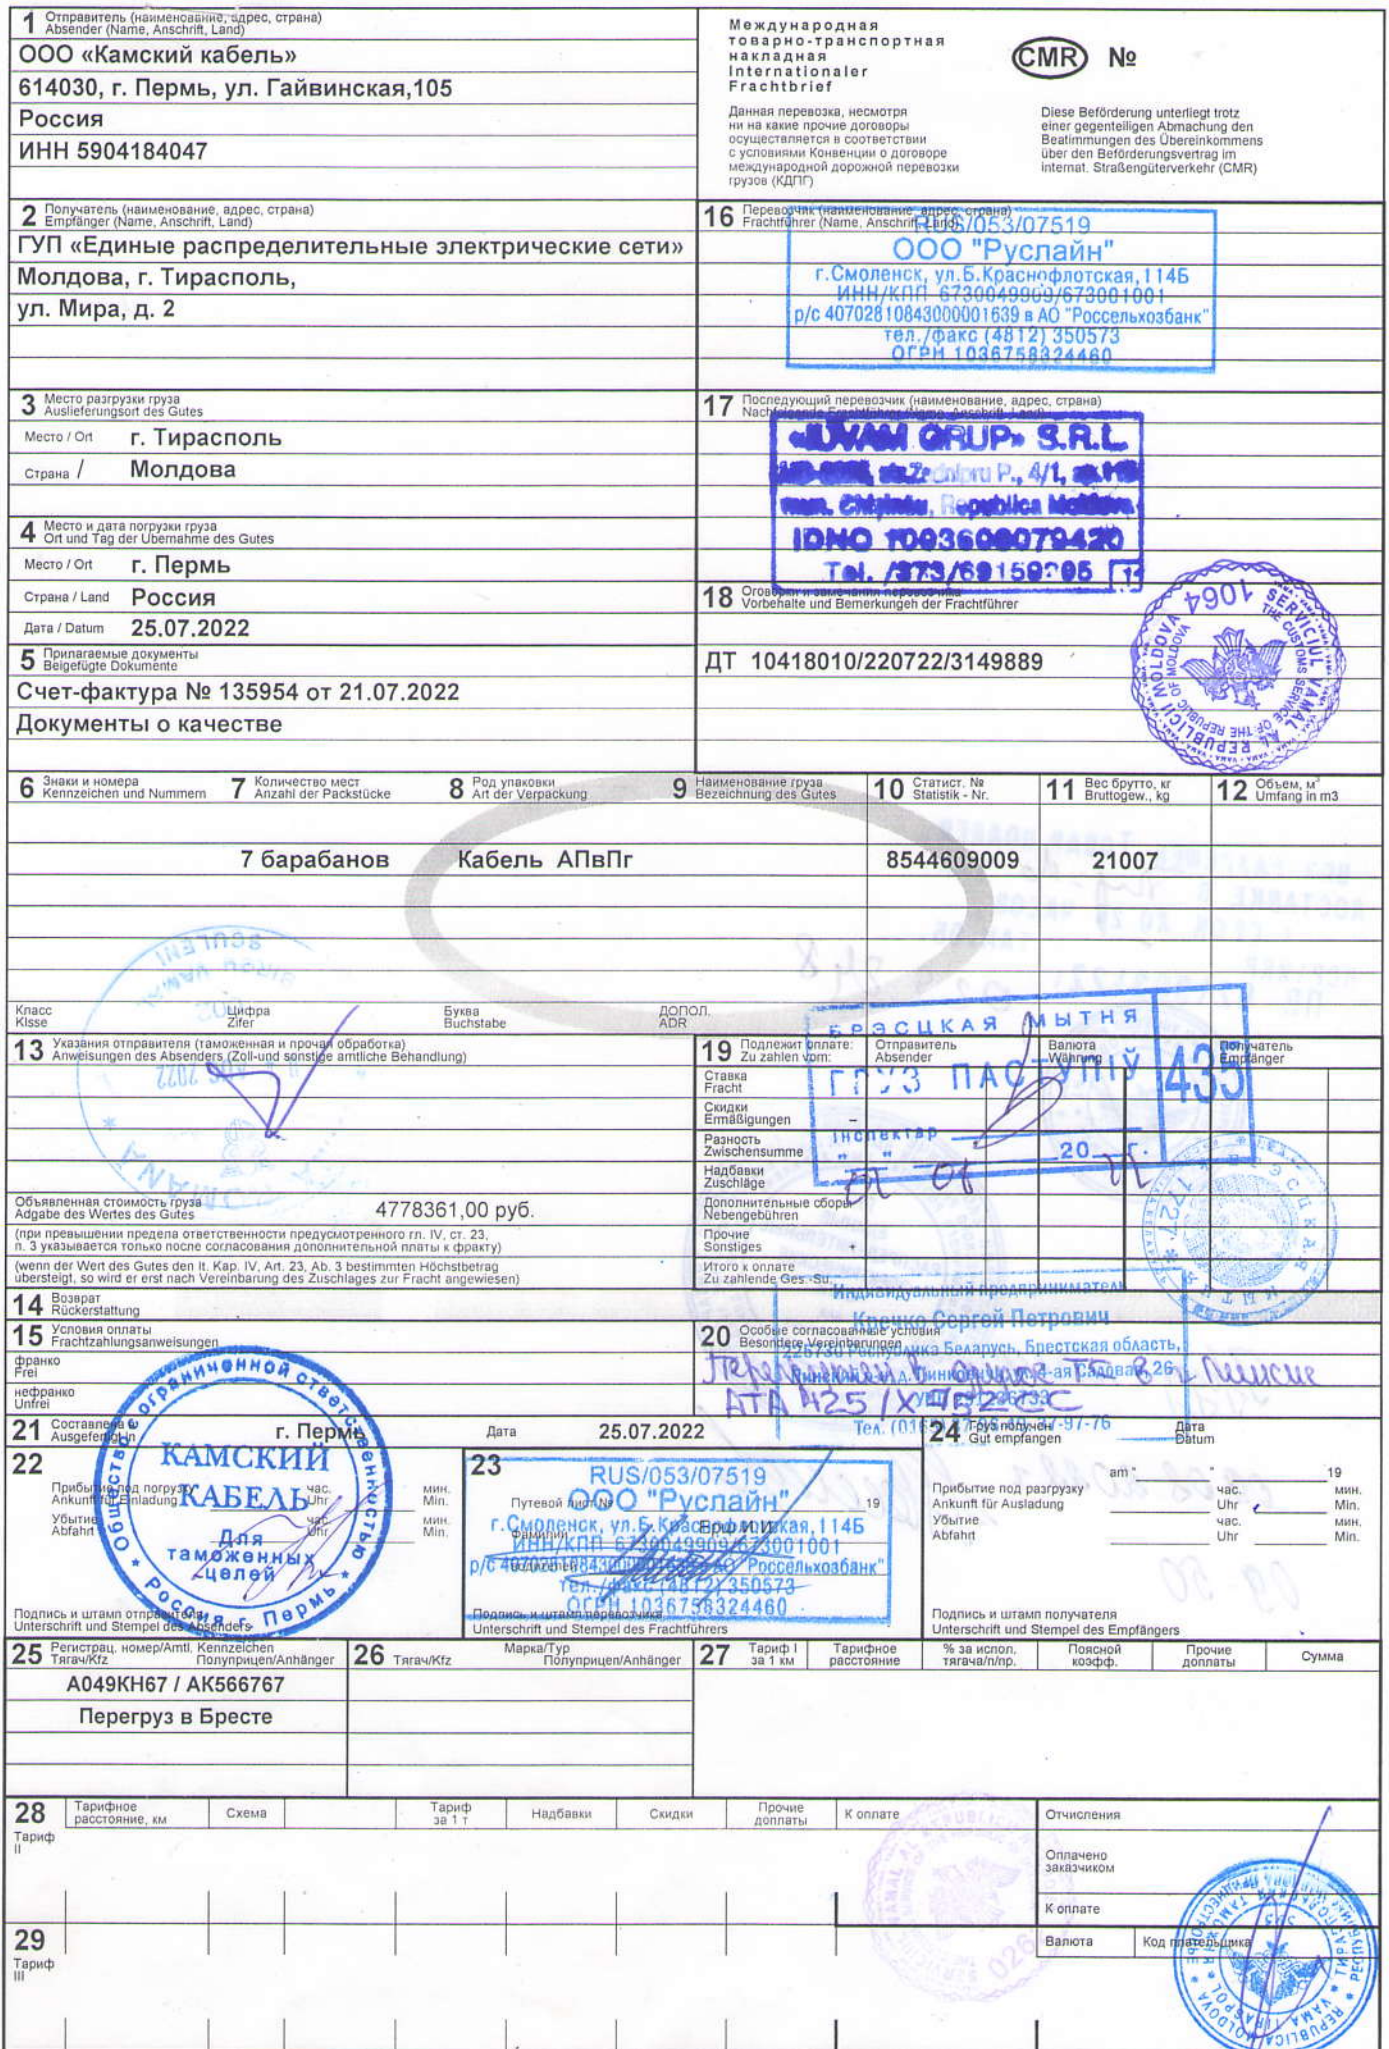 1 Отправитель (наименование, адрес, страна)
Absender (Name, Anschrift, Land)
ООО «Камский кабель»
614030, г. Пермь, ул. Гайвинская,105
Россия
ИНН 5904184047
Международная
товарно-транспортная
накладная
Internationaler
Frachtbrief
CMR №
Данная перевозка, несмотря
ни на какие прочие договоры
осуществляется в соответствии
с условиями Конвенции о договоре
международной дорожной перевозки
грузов (КДПГ)
Diese Beförderung unterliegt trotz
einer gegenteiligen Abmachung den
Beatimmungen des Übereinkommens
über den Beförderungsvertrag im
internat. Straßengüterverkehr (CMR)
2 Получатель (наименование, адрес, страна)
Empfänger (Name, Anschrift, Land)
ГУП «Единые распределительные электрические сети»
Молдова, г. Тирасполь,
ул. Мира, д. 2
16 Перевозчик (наименование, адрес, страна)
Frachtführer (Name, Anschrift, Land)
RUS/053/07519
ООО "Руслайн"
г.Смоленск, ул.Б.Краснофлотская,114Б
ИНН/КПП 6730049909/673001001
р/с 40702810843000001639 в АО "Россельхозбанк"
тел./факс (4812) 350573
ОГРН 1036758324460
3 Место разгрузки груза
Auslieferungsort des Gutes
Место / Ort г. Тирасполь
Страна / Молдова
17 Последующий перевозчик (наименование, адрес, страна)
Nachfolgende Frachtführer (Name, Anschrift, Land)
«IUVAM GRUP» S.R.L.
mun. Chişinău, Republica Moldova
IDNO 1003600079420
4 Место и дата погрузки груза
Ort und Tag der Übernahme des Gutes
Место / Ort г. Пермь
Страна / Land Россия
Дата / Datum 25.07.2022
18 Оговорки и замечания перевозчика
Vorbehalte und Bemerkungeh der Frachtführer
ДТ 10418010/220722/3149889
SERVICIUL VAMAL AL REPUBLICII MOLDOVA
THE CUSTOMS SERVICE OF THE REPUBLIC OF MOLDOVA
1064
5 Прилагаемые документы
Beigefügte Dokumente
Счет-фактура № 135954 от 21.07.2022
Документы о качестве
6 Знаки и номера
Kennzeichen und Nummern
7 Количество мест
Anzahl der Packstücke
8 Род упаковки
Art der Verpackung
9 Наименование груза
Bezeichnung des Gutes
10 Статист. №
Statistik - Nr.
11 Вес брутто, кг
Bruttogew., kg
12 Объем, м³
Umfang in m3
7 барабанов Кабель АПвПг 8544609009 21007
Класс
Klsse
Цифра
Zifer
Буква
Buchstabe
ДОПОЛ.
ADR
13 Указания отправителя (таможенная и прочая обработка)
Anweisungen des Absenders (Zoll-und sonstige amtliche Behandlung)
Объявленная стоимость груза
Adgabe des Wertes des Gutes
4778361,00 руб.
(при превышении предела ответственности предусмотренного гл. IV, ст. 23,
п. 3 указывается только после согласования дополнительной платы к фракту)
(wenn der Wert des Gutes den lt. Kap. IV, Art. 23, Ab. 3 bestimmten Höchstbetrag
übersteigt, so wird er erst nach Vereinbarung des Zuschlages zur Fracht angewiesen)
19 Подлежит оплате:
Zu zahlen vom:
Отправитель
Absender
Валюта
Währung
Получатель
Empfänger
Ставка
Fracht
Скидки
Ermäßigungen –
Разность
Zwischensumme
Надбавки
Zuschläge
Дополнительные сборы
Nebengebühren
Прочие
Sonstiges +
Итого к оплате
Zu zahlende Ges.-Su.
БРЭСЦКАЯ МЫТНЯ
ГРУЗ ПАСТУПІЎ
435
Інспектар
20 г.
14 Возврат
Rückerstattung
15 Условия оплаты
Frachtzahlungsanweisungen
франко
Frei
нефранко
Unfrei
20 Особые согласованные условия
Besondere Vereinbarungen
Индивидуальный предприниматель
Кречко Сергей Петрович
225730 Республика Беларусь, Брестская область,
21 Составлена в
Ausgefertigt in
г. Пермь
Дата 25.07.2022
22
Прибытие под погрузку
Ankunft für Einladung
час.
Uhr
мин.
Min.
Убытие
Abfahrt
час.
Uhr
мин.
Min.
Подпись и штамп отправителя
Unterschrift und Stempel des Absenders
Общество с ограниченной ответственностью
КАМСКИЙ
КАБЕЛЬ
Для
таможенных
целей
Россия г. Пермь
23
Путевой лист № 19
Фамилии
водителей
Ерш И.И.
RUS/053/07519
ООО "Руслайн"
г.Смоленск, ул.Б.Краснофлотская,114Б
ИНН/КПП 6730049909/673001001
р/с 40702810843000001639 в АО "Россельхозбанк"
тел./факс (4812) 350573
ОГРН 1036758324460
Подпись и штамп перевозчика
Unterschrift und Stempel des Frachtführers
24 Груз получен
Gut empfangen
Дата
Datum
am " " 19
Прибытие под разгрузку
Ankunft für Ausladung
час.
Uhr
мин.
Min.
Убытие
Abfahrt
час.
Uhr
мин.
Min.
Подпись и штамп получателя
Unterschrift und Stempel des Empfängers
25 Регистрац. номер/Amtl. Kennzeichen
Тягач/Kfz Полуприцеп/Anhänger
А049КН67 / АК566767
Перегруз в Бресте
26 Марка/Тур
Тягач/Kfz Полуприцеп/Anhänger
27 Тариф I
за 1 км
Тарифное
расстояние
% за испол.
тягача/п/пр.
Поясной
коэфф.
Прочие
доплаты
Сумма
28
Тариф
II
Тарифное
расстояние, км
Схема
Тариф
за 1 т
Надбавки
Скидки
Прочие
доплаты
К оплате
Отчисления
Оплачено
заказчиком
К оплате
29
Тариф
III
Валюта
Код плательщика